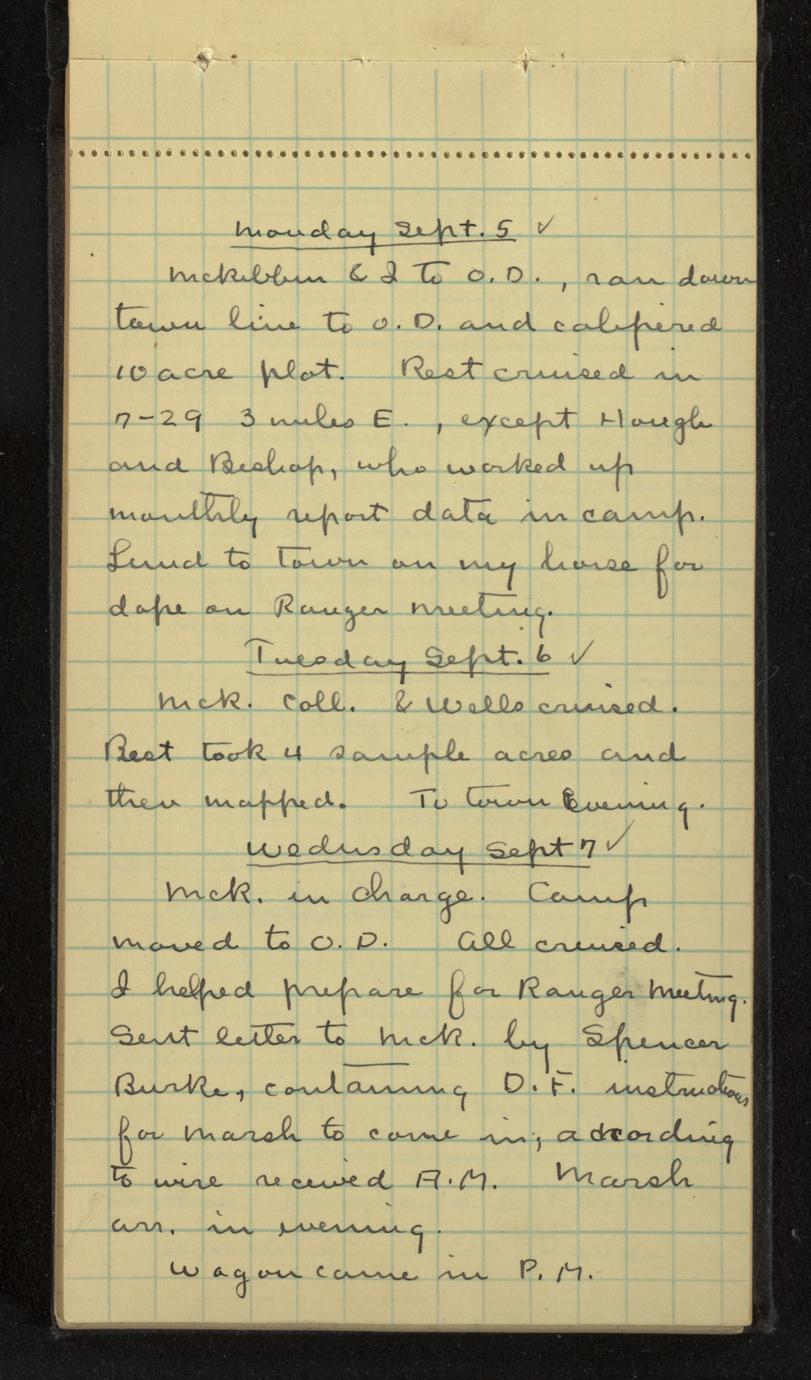 Monday Sept. 5 ✓
McKibbin & I to O.D., ran down
town line to O.D. and calipered
10 acre plot. Rest cruised in
7-29 3 miles E., except Hough
and Bishop, who worked up
monthly report data in camp.
Lund to town on my horse for
dope on Ranger meeting.
Tuesday Sept. 6 ✓
McK. Coll. & Wells cruised.
Rest took 4 sample acres and
then mapped. To town Evening.
Wednsday Sept 7 ✓
McK. in charge. Camp
moved to O.D. All cruised.
I helped prepare for Ranger Meeting.
Sent letter to McK. by Spencer
Burke, containing D.F. instructions
for Marsh to come in, according
to wire received A.M. Marsh
arr. in evening.
Wagon came in P.M.